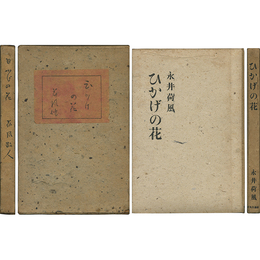 ひかげの花
荷風散人
ひかげ
の花
荷風
永井荷風
ひかげの花
ひかげの花
永井荷風